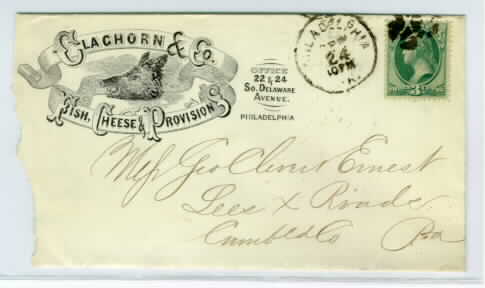 ELAGHORN & Co.
FISH, CHEESE & PROVISIONS
OFFICE
22 & 24
So. DELAWARE
AVENUE.
PHILADELPHIA
PHILADELPHIA
24
10PM
PA.
Mess Geo Clever Ernest
Lees X Roads
Cumbld Co Pa